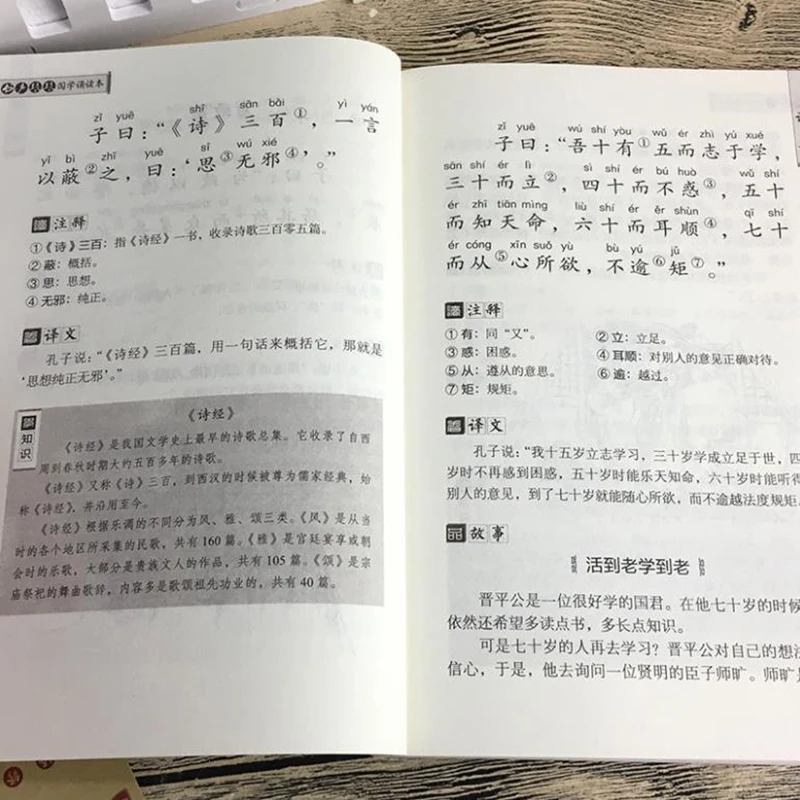 国学诵读本
zǐ yuē shī sān bǎi yì yán
子曰：“《诗》三百①，一言
yǐ bì zhī yuē sī wú xié
以蔽②之，曰：‘思③无邪④’。”
注释
①《诗》三百：指《诗经》一书，收录诗歌三百零五篇。
②蔽：概括。
③思：思想。
④无邪：纯正。
译文
孔子说：“《诗经》三百篇，用一句话来概括它，那就是
‘思想纯正无邪’。”
知识
《诗经》
《诗经》是我国文学史上最早的诗歌总集。它收录了自西
周到春秋时期大约五百多年的诗歌。
《诗经》又称《诗》三百，到西汉的时候被尊为儒家经典，始
称《诗经》，并沿用至今。
《诗经》根据乐调的不同分为风、雅、颂三类。《风》是从当
时的各个地区所采集的民歌，共有160篇。《雅》是宫廷宴享或朝
会时的乐歌，大部分是贵族文人的作品，共有105篇。《颂》是宗
庙祭祀的舞曲歌辞，内容多是歌颂祖先功业的，共有40篇。
zǐ yuē wú shí yòu wǔ ér zhì yú xué
子曰：“吾十有①五而志于学，
sān shí ér lì sì shí ér bú huò wǔ shí
三十而立②，四十而不惑③，五十
ér zhī tiān mìng liù shí ér ěr shùn qī shí
而知天命，六十而耳顺④，七十
ér cóng xīn suǒ yù bù yú jǔ
而从⑤心所欲，不逾⑥矩⑦。”
注释
①有：同“又”。 ②立：立足。
③惑：困惑。 ④耳顺：对别人的意见正确对待。
⑤从：遵从的意思。 ⑥逾：越过。
⑦矩：规矩。
译文
孔子说：“我十五岁立志学习，三十岁学成立足于世，四
岁时不再感到困惑，五十岁时能乐天知命，六十岁时能听得
别人的意见，到了七十岁就能随心所欲，而不逾越法度规矩。
故事
活到老学到老
晋平公是一位很好学的国君。在他七十岁的时候
依然还希望多读点书，多长点知识。
可是七十岁的人再去学习？晋平公对自己的想法
信心，于是，他去询问一位贤明的臣子师旷。师旷是